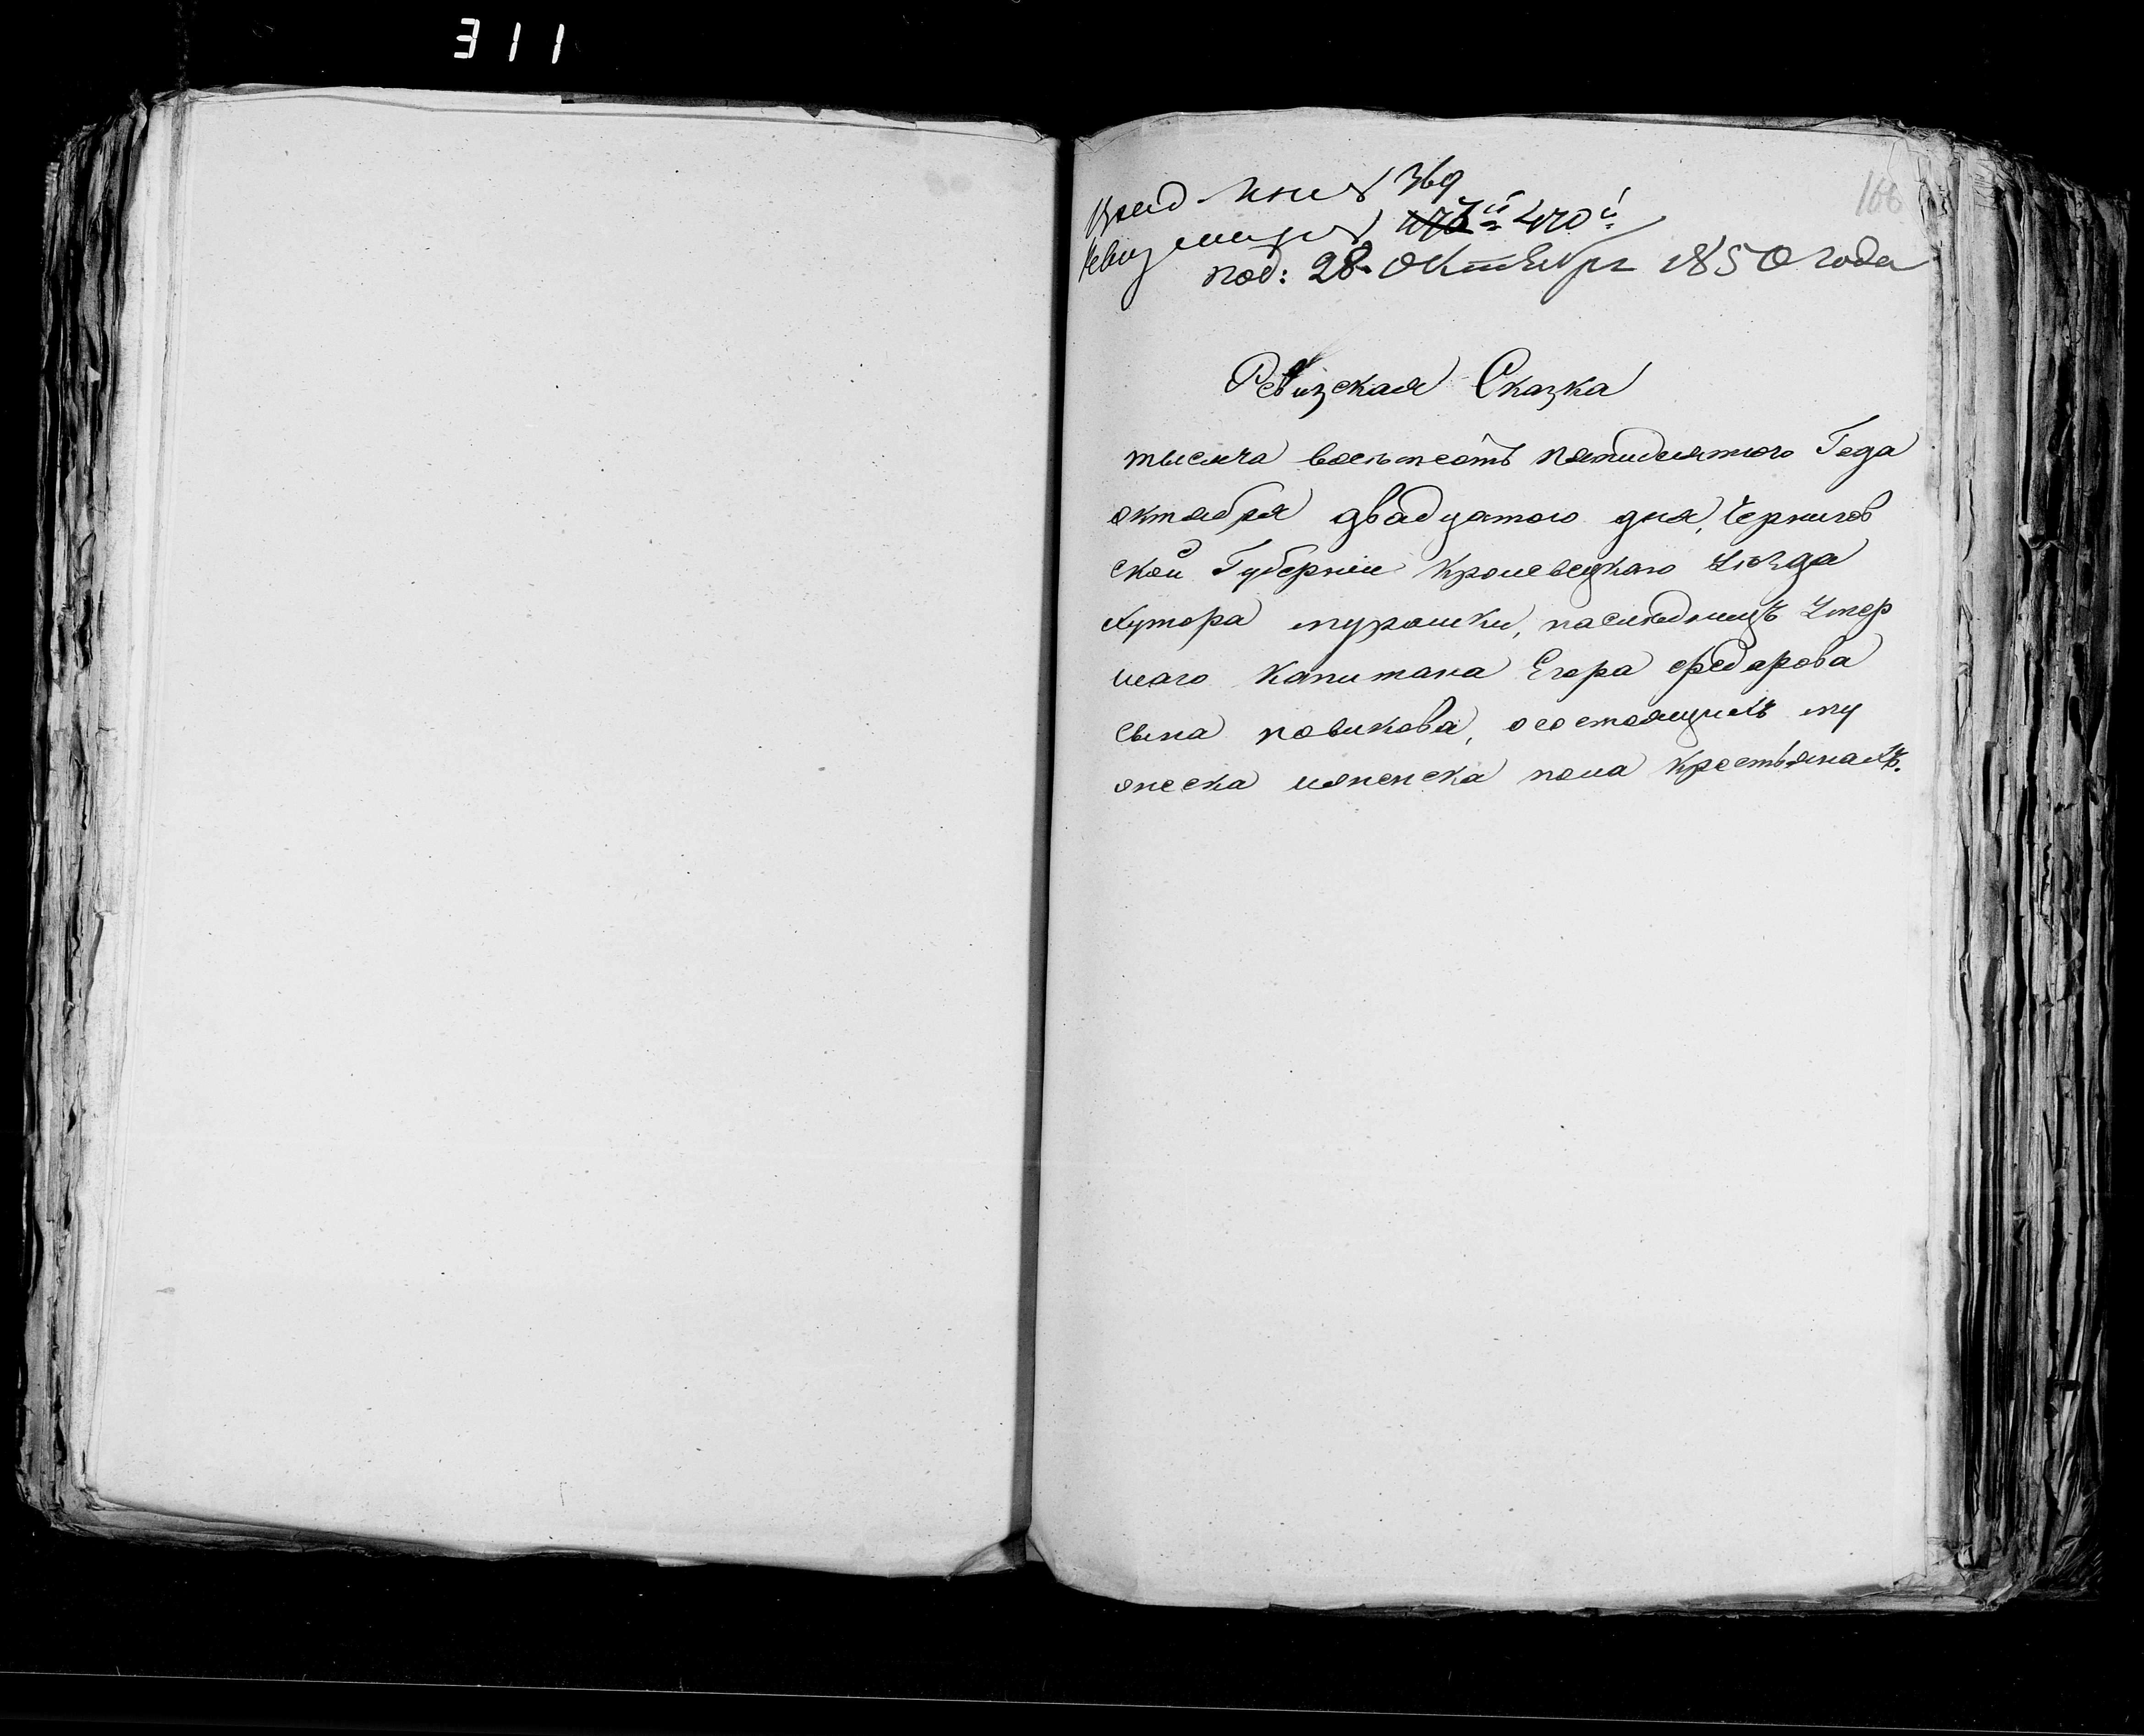 311
166
369
470й
под: 28. Октября 1850 года
Ревизская Сказка
тысяча восьмсотъ пятидесятого Года
октября двадцатого дня, Чернигов
ской Губернии Кролевецкаго Уѣзда
хутора мурашки, наследницъ Умер
шаго Капитана Егора федорова
сына новикова, о состоящихъ му
жеска и женска пола крестьянахъ.